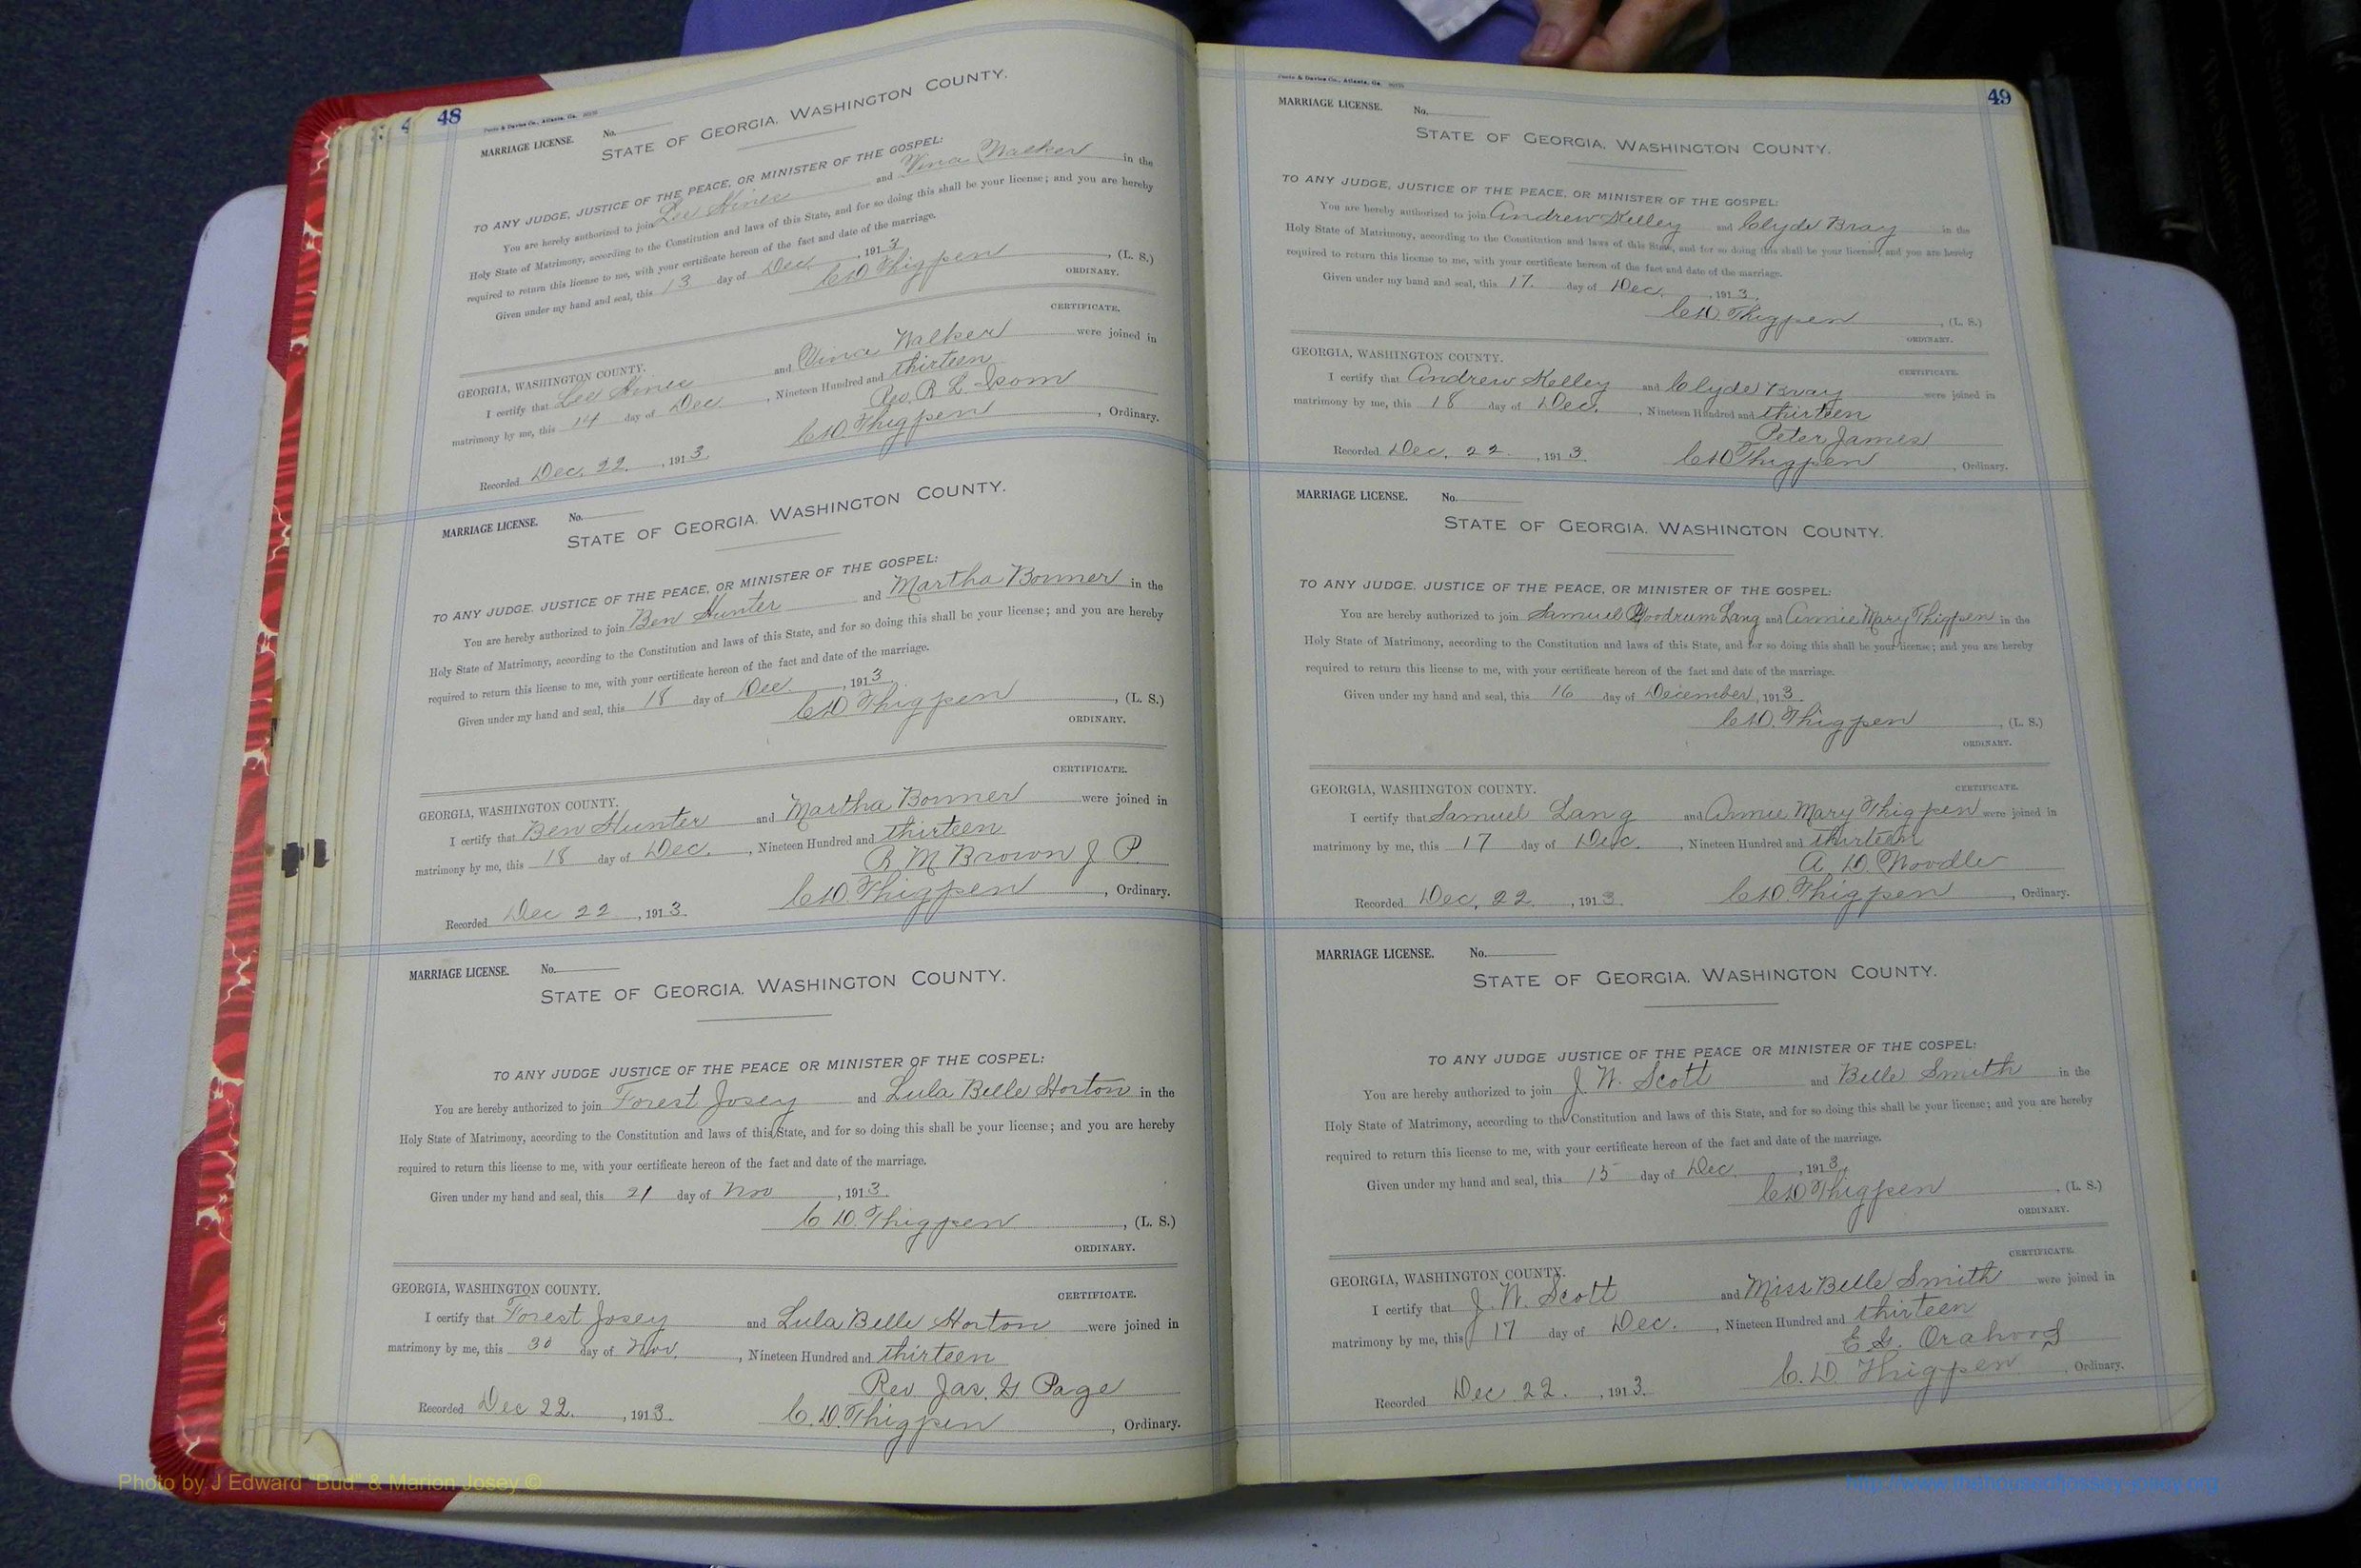 48
Foote & Davies Co., Atlanta, Ga.
MARRIAGE LICENSE. No.
STATE OF GEORGIA, WASHINGTON COUNTY.
TO ANY JUDGE, JUSTICE OF THE PEACE, OR MINISTER OF THE GOSPEL:
You are hereby authorized to join Lee Hines and Vina Walker in the
Holy State of Matrimony, according to the Constitution and laws of this State, and for so doing this shall be your license; and you are hereby
required to return this license to me, with your certificate hereon of the fact and date of the marriage.
Given under my hand and seal, this 13 day of Dec. , 1913
C.D. Thigpen , (L. S.)
ORDINARY.
CERTIFICATE.
GEORGIA, WASHINGTON COUNTY.
I certify that Lee Hines and Vina Walker were joined in
matrimony by me, this 14 day of Dec. , Nineteen Hundred and thirteen
Rev. R. L. Isom
Recorded Dec. 22. , 1913. C.D. Thigpen , Ordinary.
MARRIAGE LICENSE. No.
STATE OF GEORGIA, WASHINGTON COUNTY.
TO ANY JUDGE, JUSTICE OF THE PEACE, OR MINISTER OF THE GOSPEL:
You are hereby authorized to join Ben Hunter and Martha Bonner in the
Holy State of Matrimony, according to the Constitution and laws of this State, and for so doing this shall be your license; and you are hereby
required to return this license to me, with your certificate hereon of the fact and date of the marriage.
Given under my hand and seal, this 18 day of Dec. , 1913.
C.D. Thigpen , (L. S.)
ORDINARY.
CERTIFICATE.
GEORGIA, WASHINGTON COUNTY.
I certify that Ben Hunter and Martha Bonner were joined in
matrimony by me, this 18 day of Dec. , Nineteen Hundred and thirteen
R M Brown J P.
Recorded Dec 22 , 1913. C.D. Thigpen , Ordinary.
MARRIAGE LICENSE. No.
STATE OF GEORGIA, WASHINGTON COUNTY.
TO ANY JUDGE JUSTICE OF THE PEACE OR MINISTER OF THE GOSPEL:
You are hereby authorized to join Forest Josey and Lula Belle Horton in the
Holy State of Matrimony, according to the Constitution and laws of this State, and for so doing this shall be your license; and you are hereby
required to return this license to me, with your certificate hereon of the fact and date of the marriage.
Given under my hand and seal, this 21 day of Nov , 1913.
C.D. Thigpen , (L. S.)
ORDINARY.
GEORGIA, WASHINGTON COUNTY. CERTIFICATE.
I certify that Forest Josey and Lula Belle Horton were joined in
matrimony by me, this 30 day of Nov. , Nineteen Hundred and thirteen
Rev Jas. G Page
Recorded Dec 22. , 1913. C.D. Thigpen , Ordinary.
49
Foote & Davies Co., Atlanta, Ga.
MARRIAGE LICENSE. No.
STATE OF GEORGIA, WASHINGTON COUNTY.
TO ANY JUDGE, JUSTICE OF THE PEACE, OR MINISTER OF THE GOSPEL:
You are hereby authorized to join Andrew Kelley and Clyde Bray in the
Holy State of Matrimony, according to the Constitution and laws of this State, and for so doing this shall be your license; and you are hereby
required to return this license to me, with your certificate hereon of the fact and date of the marriage.
Given under my hand and seal, this 17. day of Dec. , 1913.
C.D. Thigpen , (L. S.)
ORDINARY.
GEORGIA, WASHINGTON COUNTY. CERTIFICATE.
I certify that Andrew Kelley and Clyde Bray were joined in
matrimony by me, this 18 day of Dec. , Nineteen Hundred and thirteen
Peter James
Recorded Dec. 22. , 1913. C.D. Thigpen , Ordinary.
MARRIAGE LICENSE. No.
STATE OF GEORGIA, WASHINGTON COUNTY.
TO ANY JUDGE, JUSTICE OF THE PEACE, OR MINISTER OF THE GOSPEL:
You are hereby authorized to join Samuel Goodrum Lang and Annie Mary Thigpen in the
Holy State of Matrimony, according to the Constitution and laws of this State, and for so doing this shall be your license; and you are hereby
required to return this license to me, with your certificate hereon of the fact and date of the marriage.
Given under my hand and seal, this 16 day of December , 1913.
C.D. Thigpen , (L. S.)
ORDINARY.
GEORGIA, WASHINGTON COUNTY. CERTIFICATE.
I certify that Samuel Lang and Annie Mary Thigpen were joined in
matrimony by me, this 17 day of Dec. , Nineteen Hundred and thirteen
A. D. Woodle
Recorded Dec. 22 , 1913. C.D. Thigpen , Ordinary.
MARRIAGE LICENSE. No.
STATE OF GEORGIA, WASHINGTON COUNTY.
TO ANY JUDGE JUSTICE OF THE PEACE OR MINISTER OF THE GOSPEL:
You are hereby authorized to join J. W. Scott and Belle Smith in the
Holy State of Matrimony, according to the Constitution and laws of this State, and for so doing this shall be your license; and you are hereby
required to return this license to me, with your certificate hereon of the fact and date of the marriage.
Given under my hand and seal, this 15 day of Dec. , 1913.
C.D. Thigpen , (L. S.)
ORDINARY.
CERTIFICATE.
GEORGIA, WASHINGTON COUNTY.
I certify that J. W. Scott and Miss Belle Smith were joined in
matrimony by me, this 17 day of Dec. , Nineteen Hundred and thirteen
E. G. Orahood
Recorded Dec 22. , 1913. C. D. Thigpen , Ordinary.
Photo by J Edward "Bud" & Marion Josey ©
http://www.thehouseofjossey-josey.org